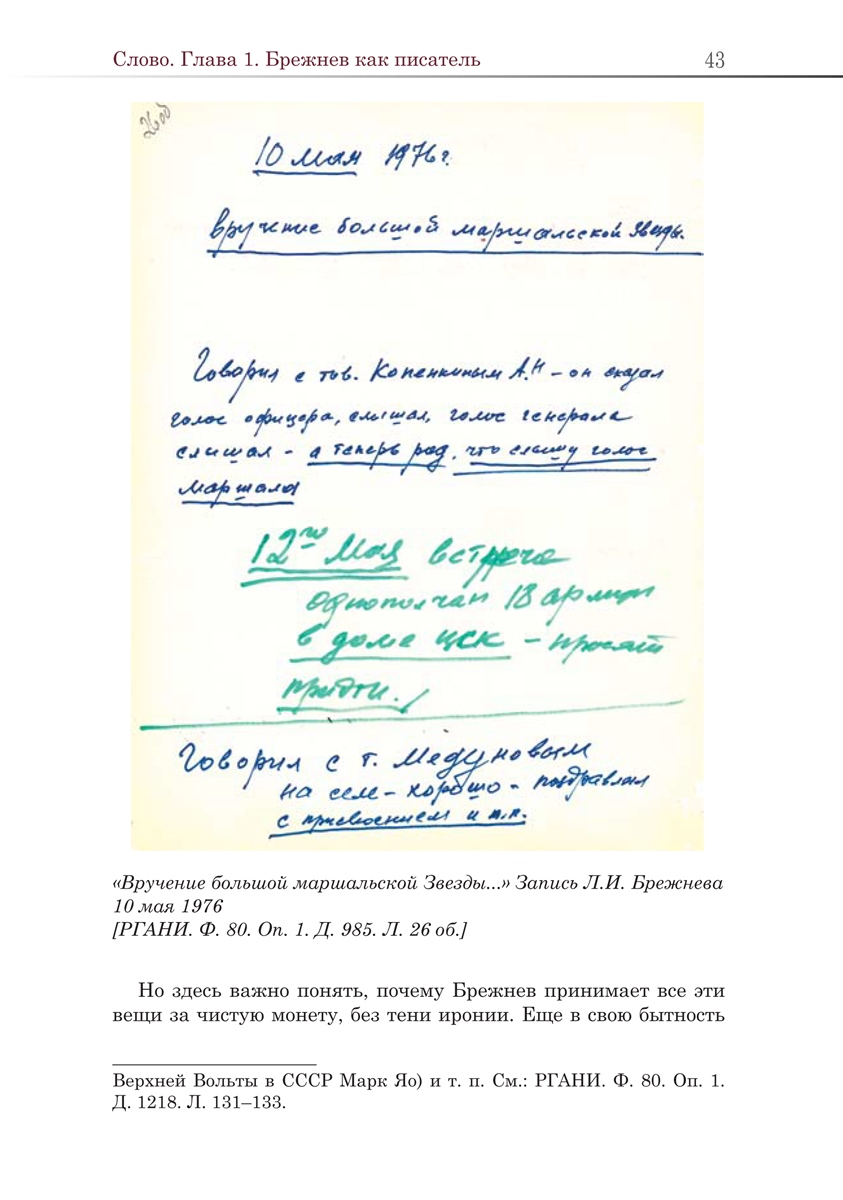 Слово. Глава 1. Брежнев как писатель 43
26об
10 мая 1976 г.
Вручение большой маршальской Звезды.
Говорил с тов. Копенкиным А.Н – он сказал
голос офицера, слышал, голос генерала
слышал – а теперь рад, что слышу голос
маршала
12го мая встреча
однополчан 18 армии
в доме ЦСК – просят
придти.
Говорил с т. Медуновым
на селе – хорошо – поздравлял
с присвоением и т.п.
«Вручение большой маршальской Звезды...» Запись Л.И. Брежнева
10 мая 1976
[РГАНИ. Ф. 80. Оп. 1. Д. 985. Л. 26 об.]
Но здесь важно понять, почему Брежнев принимает все эти
вещи за чистую монету, без тени иронии. Еще в свою бытность
Верхней Вольты в СССР Марк Яо) и т. п. См.: РГАНИ. Ф. 80. Оп. 1.
Д. 1218. Л. 131–133.